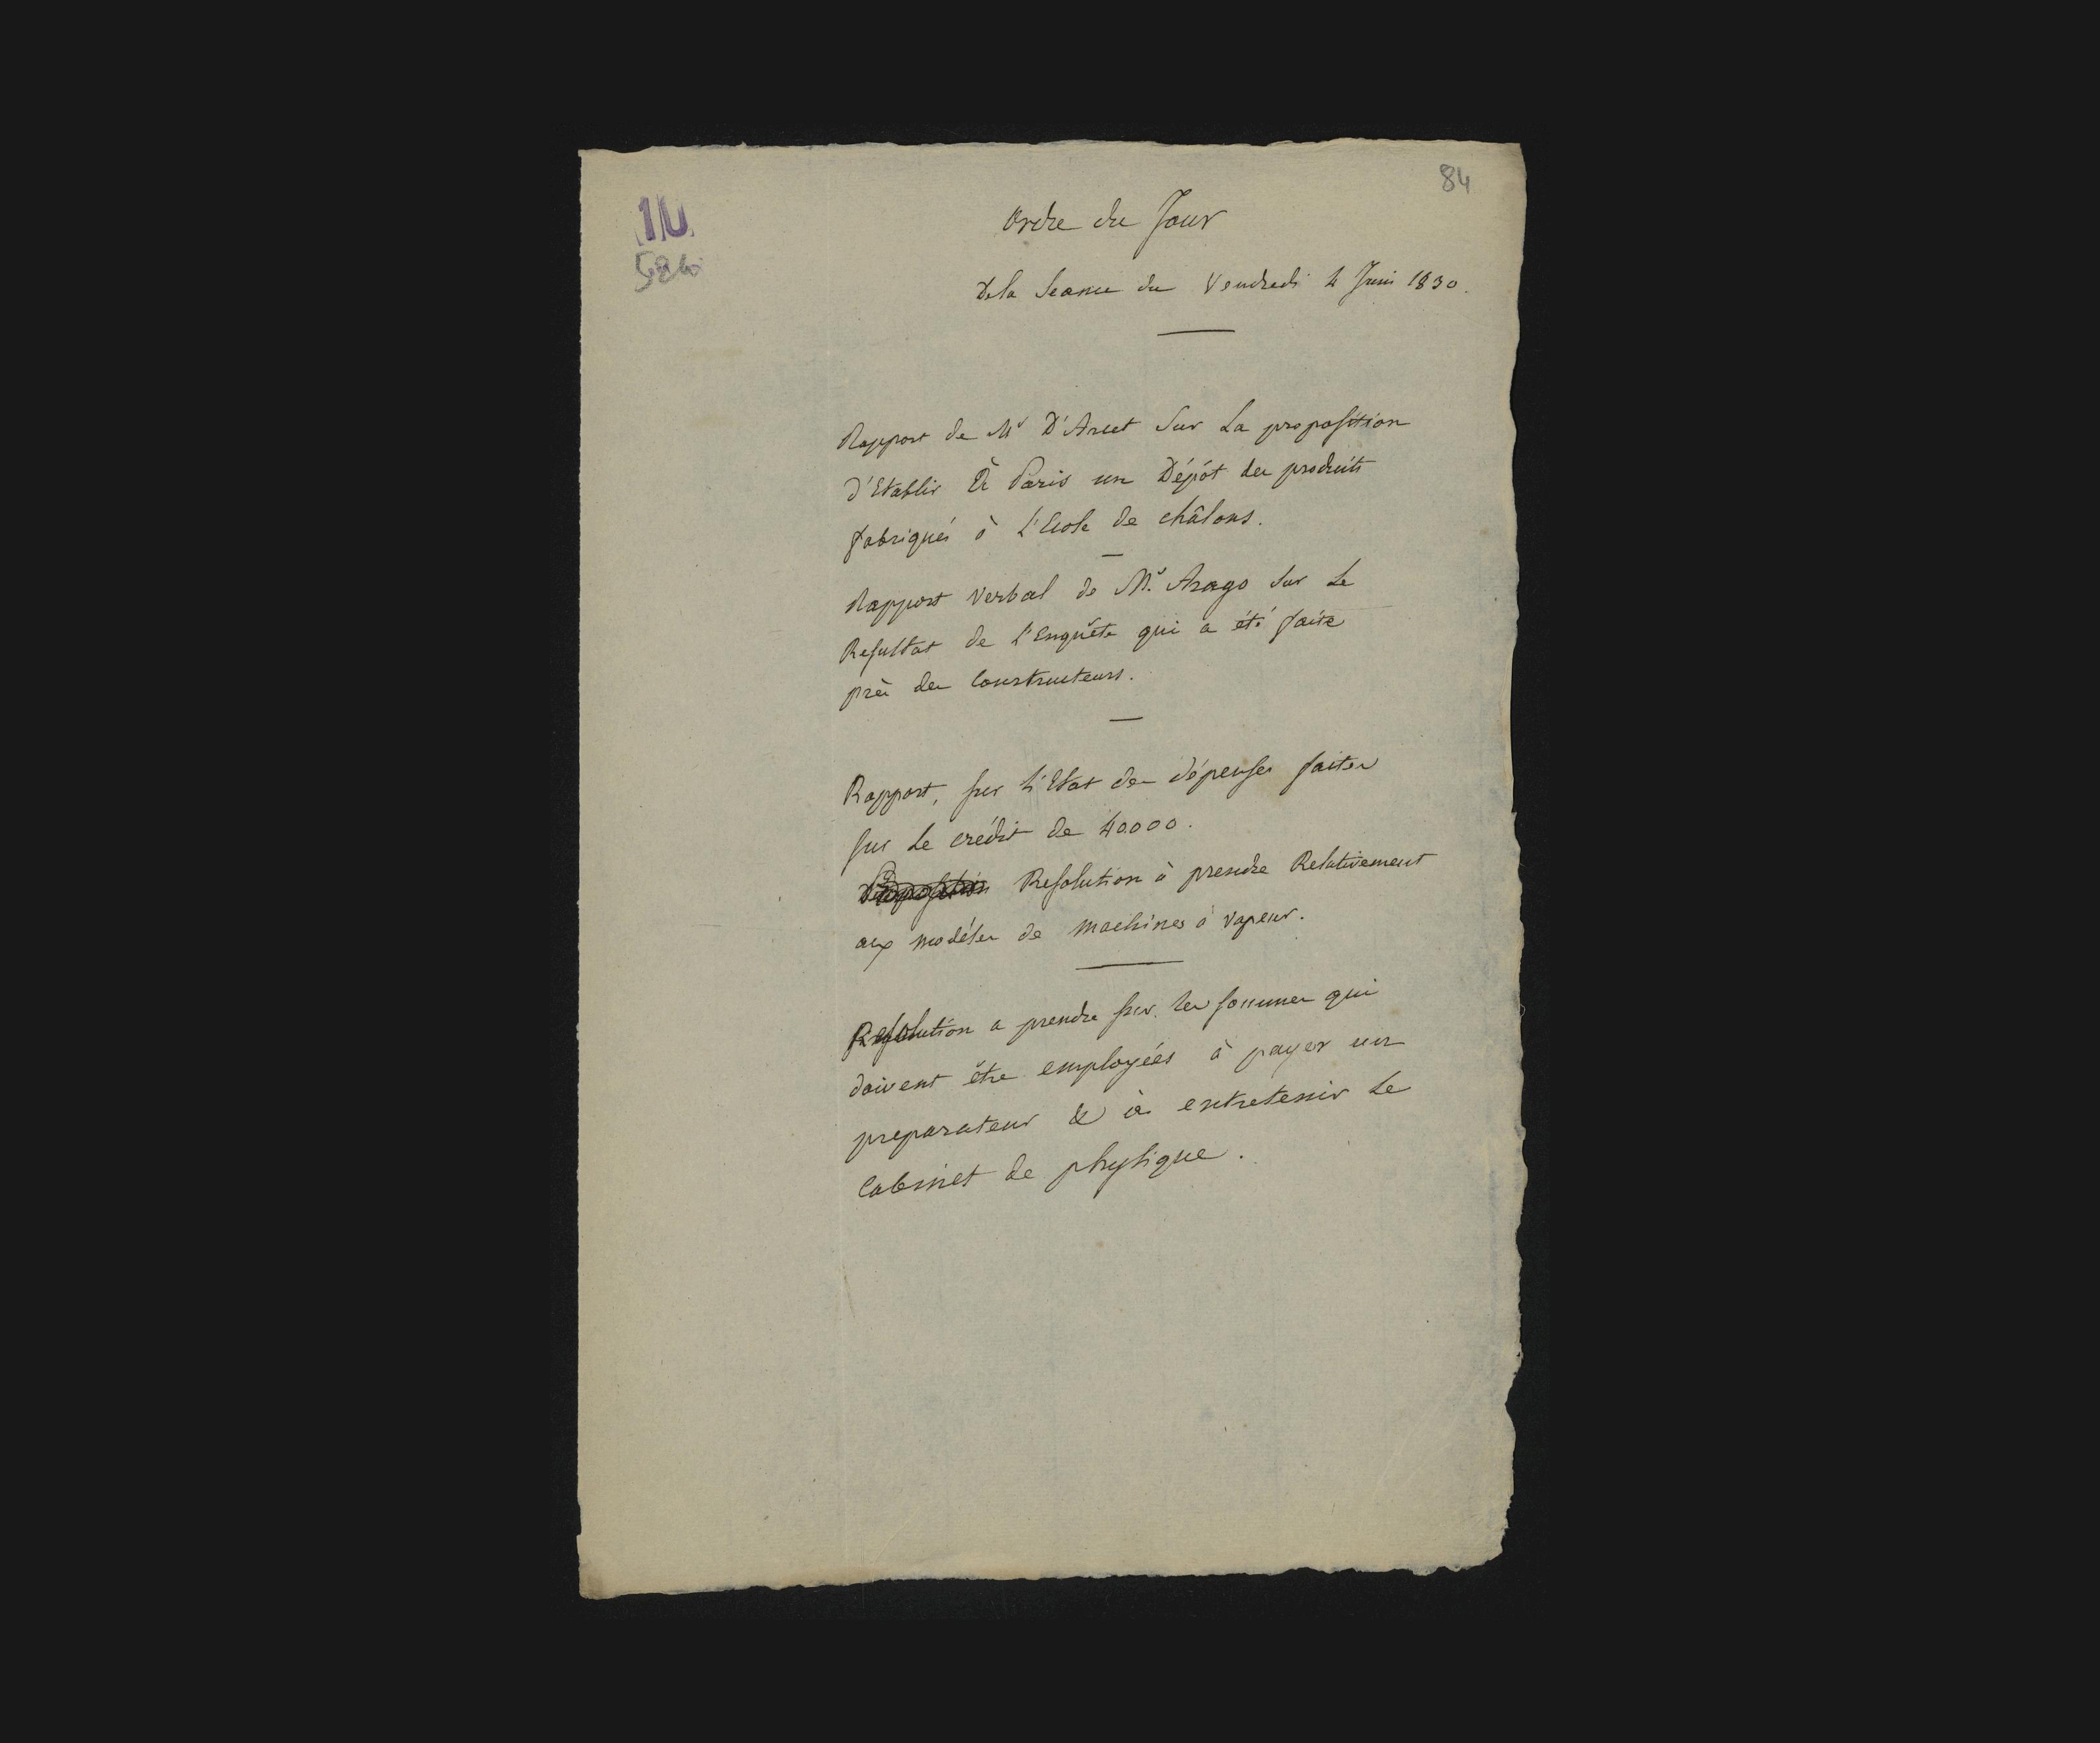 84
10
Ordre du Jour
De la Séance du Vendredi 4 Juin 1830.
Rapport de Mr D'Arcet Sur La proposition
d'Etablir à Paris un Dépôt des produits
fabriqués à L'Ecole de châlons.
Rapport Verbal de Mr. Arago Sur Le
Resultat de L'Enquête qui a été faite
près des Constructeurs.
Rapport, sur L'Etat des dépenses faites
sur Le crédit de 40000.
Proposition Resolution à prendre Relativement
aux modéles de machines à Vapeur.
Resolution a prendre sur les sommes qui
doivent être employées à payer un
preparateur & à entretenir Le
Cabinet de physique.